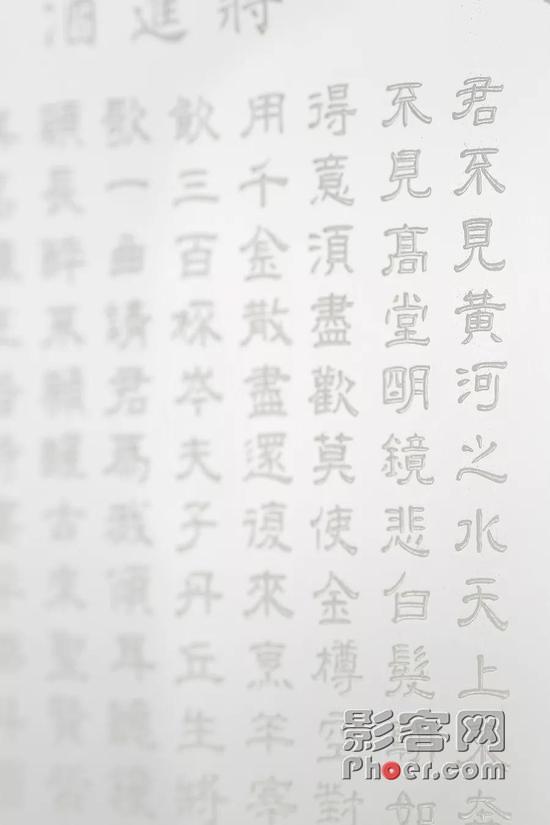 將進酒
君不見黃河之水天上來奔
不見髙堂明鏡悲白髮朝如
得意須盡歡莫使金樽空對
用千金散盡還復來烹羊宰
飲三百杯岑夫子丹丘生將
歌一曲請君爲我傾耳聽
願長醉不願醒古來聖賢皆
影客网
Phoer.com